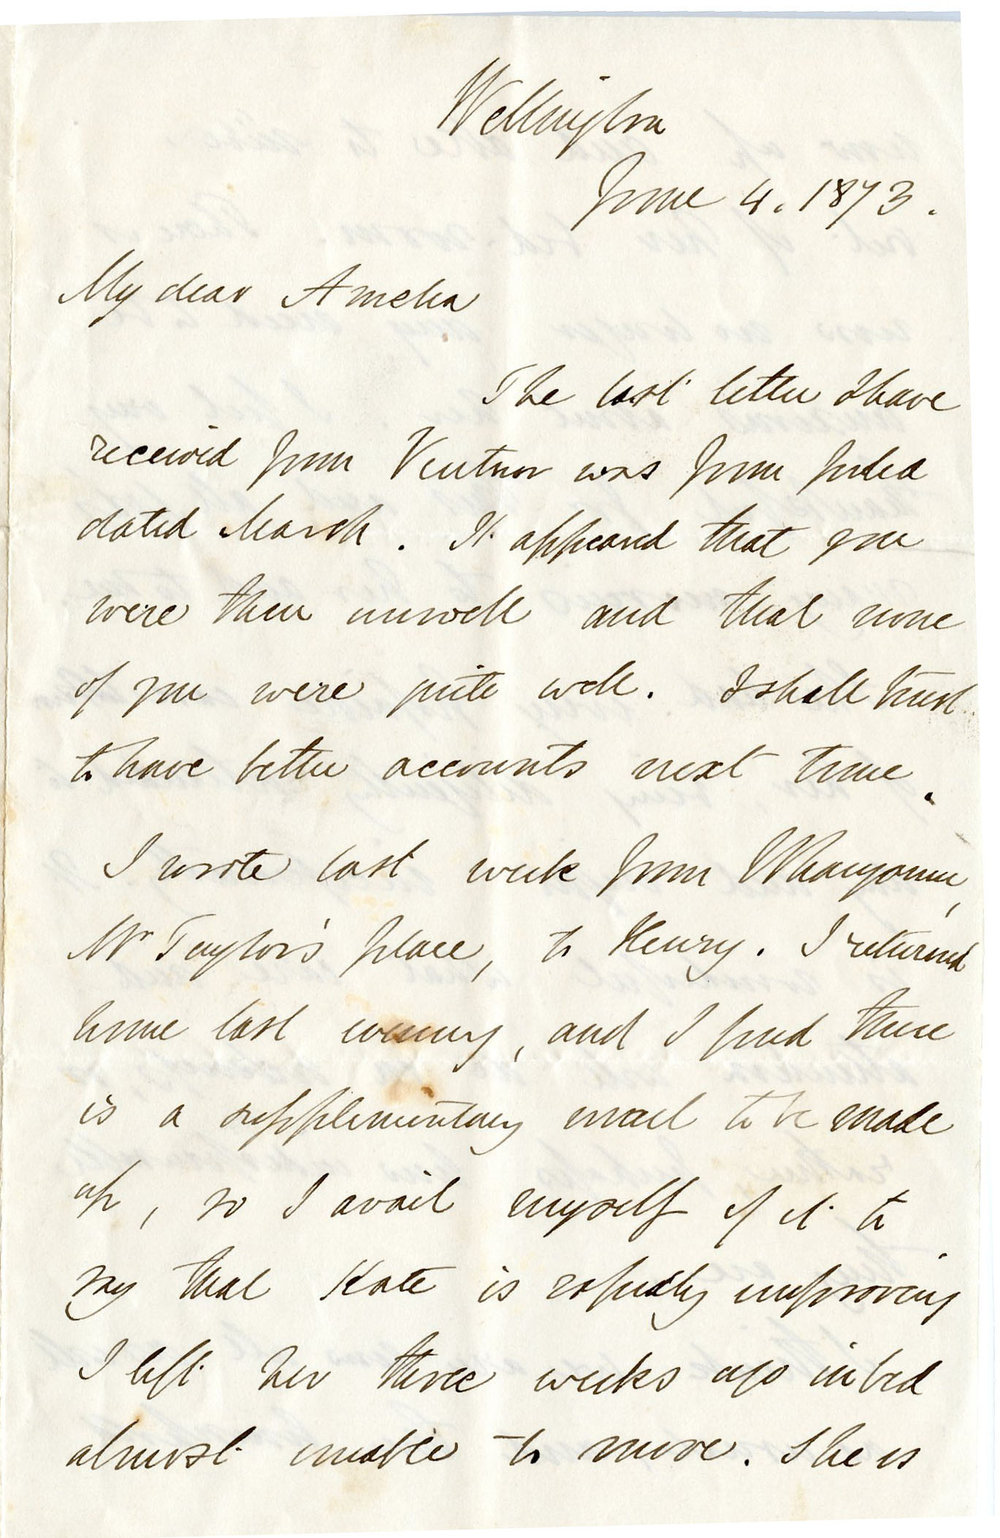 Wellington
June 4. 1873.
My dear Amelia
The last letter I have
received from Ventnor was from Julia
dated March. It appeared that you
were then unwell and that none
of you were quite well. I shall trust
to have better accounts next time.
I wrote last week from
Mr Taylor's place, to Henry. I returned
home last evening, and I find there
is a supplementary mail to be made
up, so I avail myself of it to
say that Kate is rapidly improving
I left her three weeks ago in bed
almost unable to move. She is